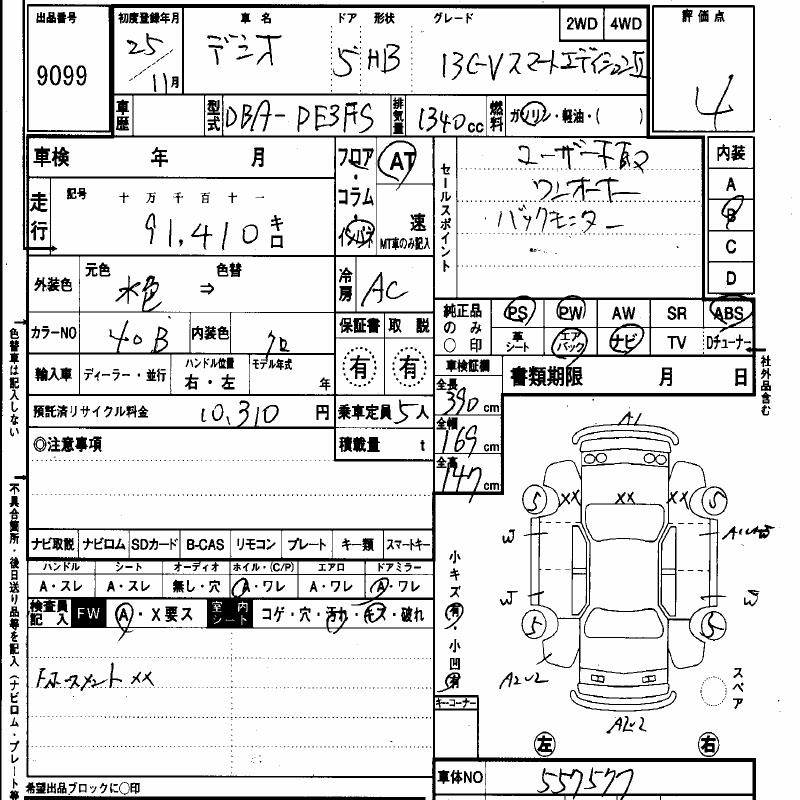 出品番号
9099
初度登録年月
25/11月
車名
デミオ
ドア
5
形状
HB
グレード
13C-V スマートエディションII
2WD 4WD
評価点
4
車歴
型式
DBA-DE3FS
排気量
1340cc
燃料
ガソリン・軽油・( )
車検 年 月
走行
記号 十 万 千 百 十 一
91,410 キロ
フロア・コラム・インパネ
AT
速
MT車のみ記入
セールスポイント
ユーザー下取
ワンオーナー
バックモニター
内装
A
B
C
D
外装色
元色 色替
水色 ⇒
冷房
AC
カラーNO
40B
内装色
クロ
保証書 取説
有 有
純正品のみ○印
PS PW AW SR ABS
革シート エアバック ナビ TV Dチューナー
輸入車
ディーラー・並行
ハンドル位置
右・左
モデル年式
年
車検証欄
全長
390cm
全幅
169cm
全高
147cm
書類期限 月 日
預託済リサイクル料金
10,310円
乗車定員 5人
積載量 t
◎注意事項
ナビ取説 ナビロム SDカード B-CAS リモコン プレート キー類 スマートキー
ハンドル シート オーディオ ホイル・(C/P) エアロ ドアミラー
A・スレ A・スレ 無し・穴 A・ワレ A・ワレ A・ワレ
検査員記入
FW
A・X要ス
室内シート
コゲ・穴・汚れ・キズ・破れ
Fホースメント XX
小キズ有・小凹有
A1
XX XX XX
5 5
W
W W
5 5
A2U2
A2U2
スペア
キーコーナー
左 右
車体NO
557577
希望出品ブロックに○印
色替車は記入しない
不具合箇所・後日送り品等を記入(ナビロム・プレート等
社外品含む